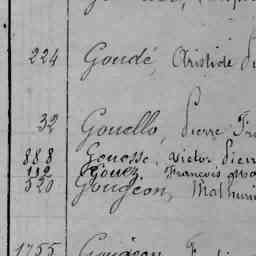 224 Goudé, Aristide
32 Gouello, Pierre
888 Gousse, Victor Pierr
112 Gouez, François
520 Gougeon, Mathurin
1755 Gougeon